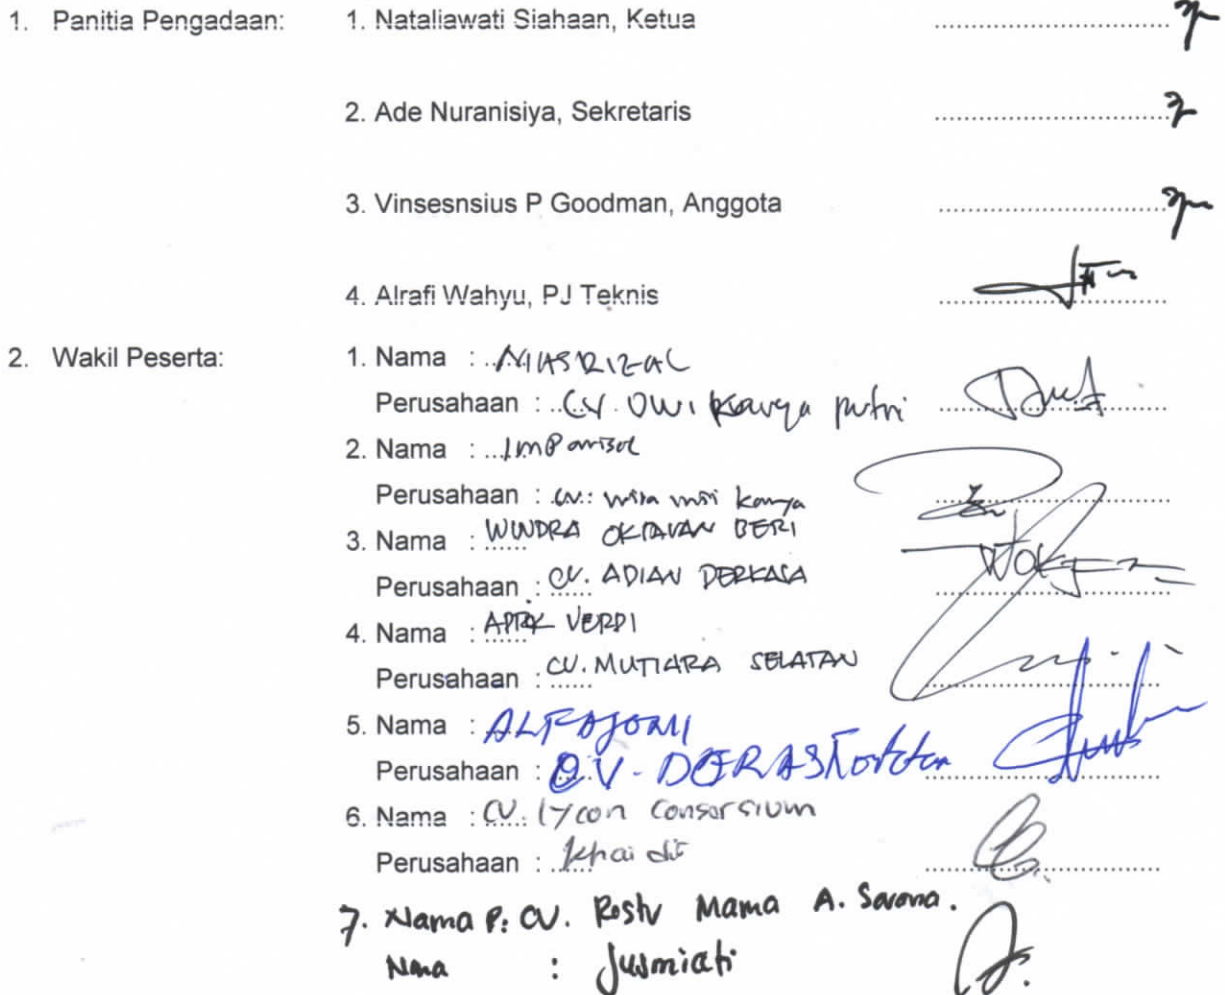 1. Panitia Pengadaan: 1. Nataliawati Siahaan, Ketua
2. Ade Nuranisiya, Sekretaris
3. Vinsesnsius P Goodman, Anggota
4. Alrafi Wahyu, PJ Teknis
2. Wakil Peserta: 1. Nama : NIASRIZAL
Perusahaan : CV. DWI karya putri
2. Nama :
Perusahaan : CV. karya
3. Nama : WINDRA OKTAVAN BERI
Perusahaan : CV. ADIAN PERKASA
4. Nama : VERDI
Perusahaan : CV. MUTIARA SELATAN
5. Nama : ALFAJONI
Perusahaan : CV.
6. Nama : CV. lycon Consorsium
Perusahaan : khaidit
7. Nama P: CV. Restu Mama A.
Nama : Jusmiati